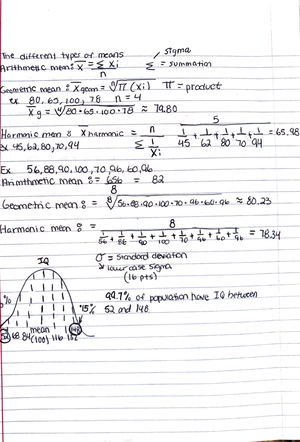 The different types of means
sigma
Arithmetic mean: x̄ = Σ xᵢ / n
Σ = summation
Geometric mean: x̄geom = ⁿ√π(xᵢ) π = product
ex 80, 65, 100, 78 n = 4
x̄g = ⁴√80·65·100·78 ≈ 79.80
Harmonic mean: x̄ harmonic = n / Σ 1/xᵢ
5 / 1/45 + 1/62 + 1/80 + 1/70 + 1/94 = 65.98
ex 45, 62, 80, 70, 94
Ex. 56, 88, 90, 100, 70, 96, 60, 96
Arithmetic mean: = 656 / 8 = 82
Geometric mean: = ⁸√56·88·90·100·70·96·60·96 ≈ 80.23
Harmonic mean: = 8 / 1/56 + 1/88 + 1/90 + 1/100 + 1/70 + 1/96 + 1/60 + 1/96 = 78.34
IQ
σ = Standard deviation
lower case sigma
(16 pts)
99.7% of population have IQ between
52 and 148
%
.15%
52 68 84 mean 116 132 148
(100)